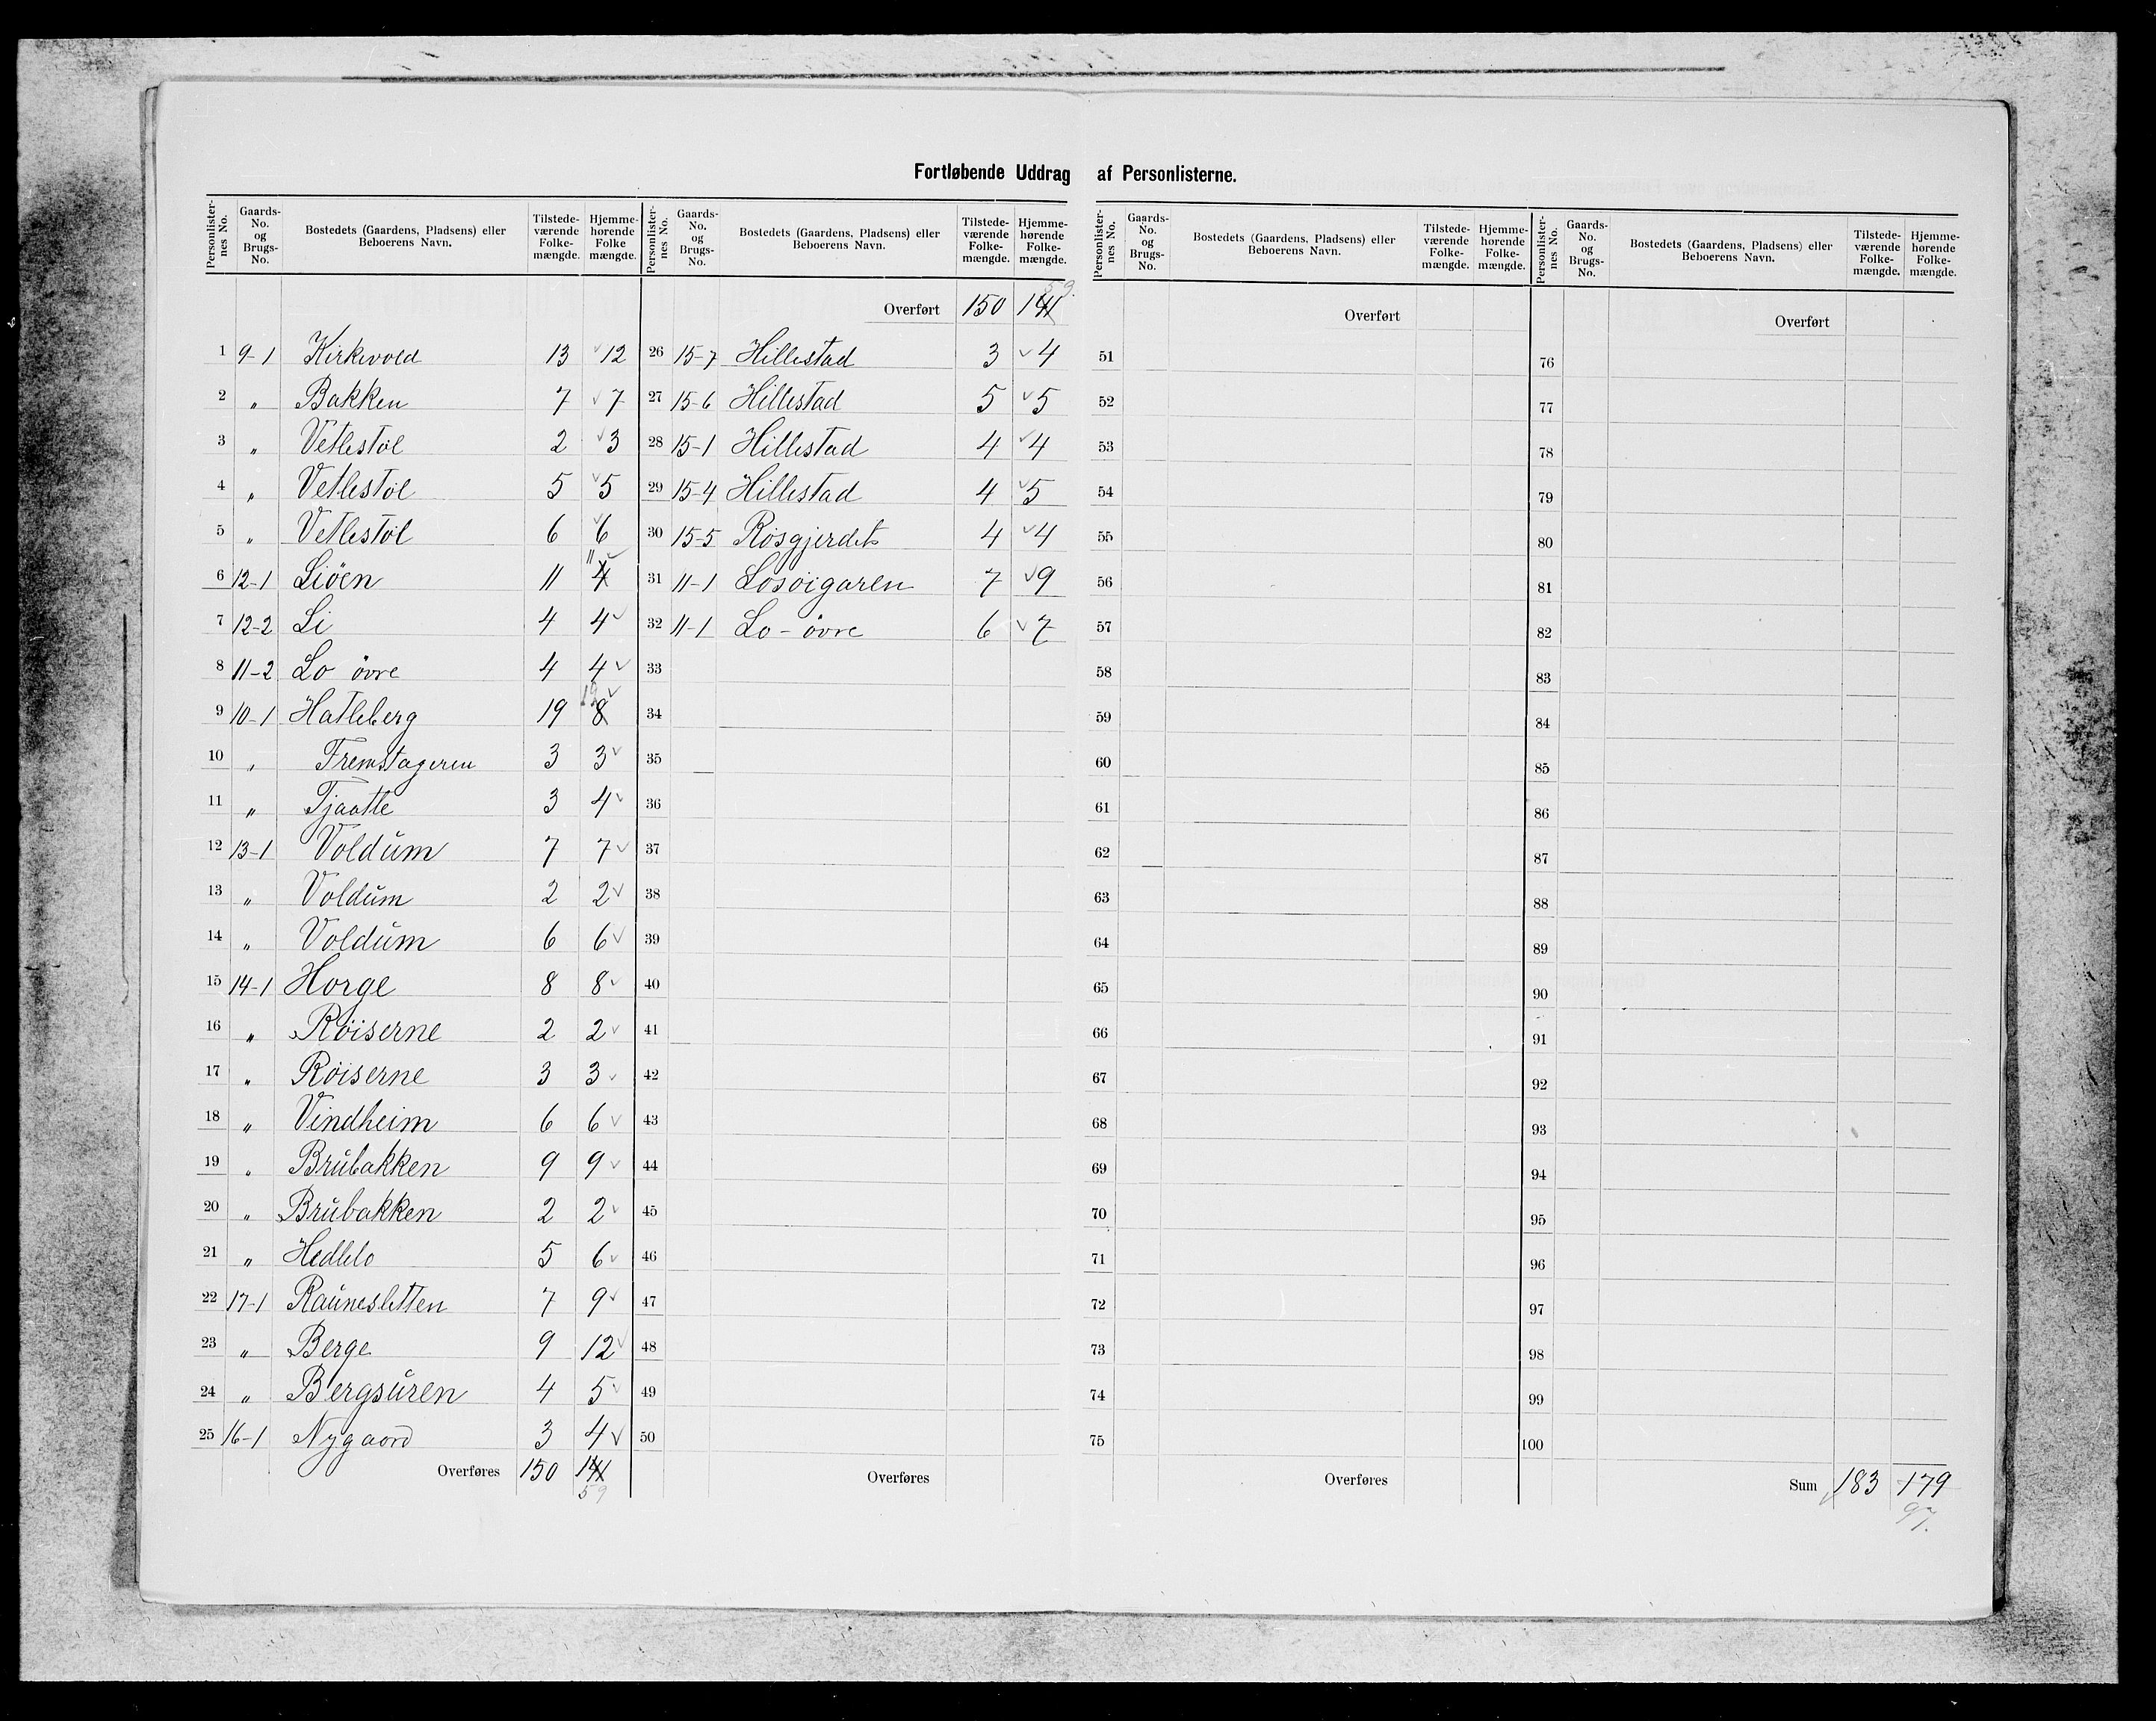 Fortløbende Uddrag af Personlisterne.
Personlister-nes No. Gaards-No. og Brugs-No. Bostedets (Gaardens, Pladsens) eller Beboerens Navn. Tilstede-værende Folke-mængde. Hjemme-hørende Folke mængde.
1 9-1 Kirkevold 13 ✓ 12
2 „ Bakken 7 ✓ 7
3 „ Vetlestøl 2 ✓ 3
4 „ Vetlestøl 5 ✓ 5
5 „ Vetlestøl 6 ✓ 6
6 12-1 Liöen 11 4 11 ✓
7 12-2 Li 4 4 ✓
8 11-2 Lo övre 4 4 ✓
9 10-1 Hatleberg 19 8 19 ✓
10 „ Fremstageren 3 3 ✓
11 „ Tjaatte 3 4 ✓
12 13-1 Voldum 7 7 ✓
13 „ Voldum 2 2 ✓
14 „ Voldum 6 6 ✓
15 14-1 Horge 8 8 ✓
16 „ Röiserne 2 2 ✓
17 „ Röiserne 3 3 ✓
18 „ Vindheim 6 6 ✓
19 „ Brubakken 9 9 ✓
20 „ Brubakken 2 2 ✓
21 „ Hedlelo 5 6 ✓
22 17-1 Raunesletten 7 9 ✓
23 „ Berge 9 12 ✓
24 „ Bergsuren 4 5 ✓
25 16-1 Nygaard 3 4 ✓
Overføres 150 141
59
Personlister-nes No. Gaards-No. og Brugs-No. Bostedets (Gaardens, Pladsens) eller Beboerens Navn. Tilstede-værende Folke-mængde. Hjemme-hørende Folke-mængde.
59.
Overført 150 141
26 15-7 Hillestad 3 ✓ 4
27 15-6 Hillestad 5 ✓ 5
28 15-1 Hillestad 4 ✓ 4
29 15-4 Hillestad 4 ✓ 5
30 15-5 Røsgjerdet 4 ✓ 4
31 11-1 Losöigaren 7 ✓ 9
32 11-1 Lo - övre 6 ✓ 7
33
34
35
36
37
38
39
40
41
42
43
44
45
46
47
48
49
50
Overføres
Personlister-nes No. Gaards-No. og Brugs-No. Bostedets (Gaardens, Pladsens) eller Beboerens Navn. Tilstede-værende Folke-mængde. Hjemme-hørende Folke-mængde.
Overført
51
52
53
54
55
56
57
58
59
60
61
62
63
64
65
66
67
68
69
70
71
72
73
74
75
Overføres
Personlister-nes No. Gaards-No. og Brugs-No. Bostedets (Gaardens, Pladsens) eller Beboerens Navn. Tilstede-værende Folke-mængde. Hjemme-hørende Folke-mængde.
Overført
76
77
78
79
80
81
82
83
84
85
86
87
88
89
90
91
92
93
94
95
96
97
98
99
100
Sum ✓ 183 179
97.